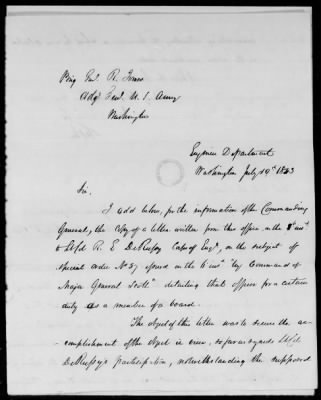 Brig Genl R. Jones
Adjt Genl U. S. Army
Washington
Engineer Department
Washington July 19th 1843
Sir.
I add below, for the information of the Commanding
General, the copy of a letter written from this office on the 8th inst
to Lt Col R. E. DeRussy Corps of Engrs, on the subject of
special order No 57 issued on the 6th inst "by Command of
Major General Scott" detailing that officer for a certain
duty as a member of a board.
The object of this letter was to secure the ac-
complishment of the object in view, so far as regards Lt Col
DeRussy's participation, notwithstanding the supposed